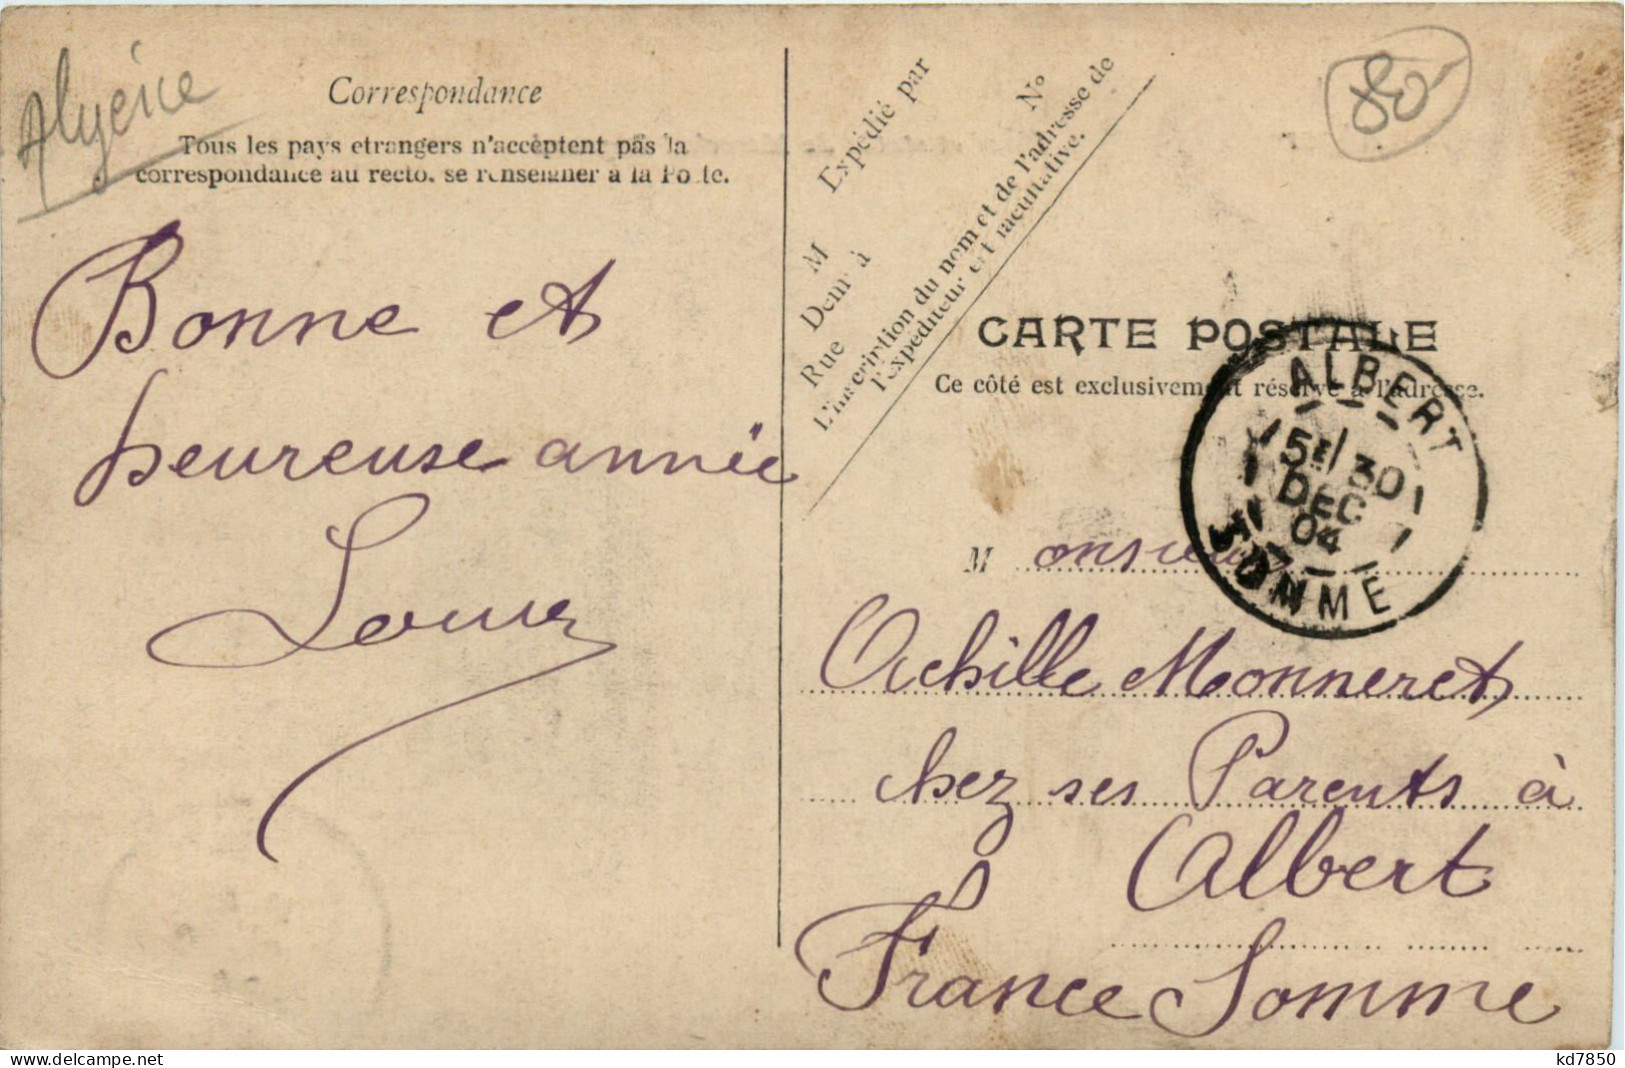 Algérie
Correspondance
Tous les pays etrangers n'acceptent pas la
correspondance au recto. se renseigner à la Poste.
Bonne et
heureuse année
Expédié par
M
Demt à
Rue
No
L'inscription du nom et de l'adresse de
l'expéditeur est facultative.
80
CARTE POSTALE
Ce côté est exclusivement réservé à l'adresse.
ALBERT
5E/30
DEC
04
SOMME
Monsieur
Achille Monneret
chez ses Parents à
Albert
France Somme
kd7850